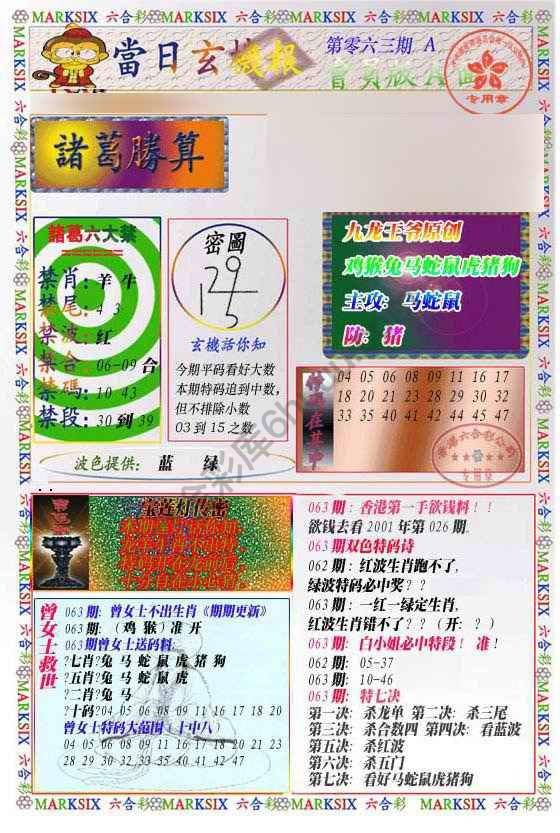 MARKSIX 六合彩 MARKSIX 六合彩 MARKSIX 六合彩 MARKSIX 六合彩
當日玄機報
第零六三期 A
會員版A面
专用章
諸葛勝算
諸葛六大禁
禁肖:羊牛
禁尾:4 3
禁波:红
禁合:06-09合
禁碼:10 43
禁段:30到39
密圖
129
5
玄機話你知
今期平码看好大数
本期特码追到中数,
但不排除小数
03到15之数
九龙王爷原创
鸡猴兔马蛇鼠虎猪狗
主攻:马蛇鼠
防:猪
特碼在其中
04 05 06 08 09 11 16 17
18 20 21 23 28 29 30 32
33 35 40 41 42 44 45 47
专用章
波色提供: 蓝 绿
宝莲灯传密
曾女士救世
063期:曾女士不出生肖《期期更新》
063期:(鸡 猴)准开
063期曾女士送码料:
?七肖?兔马蛇鼠虎猪狗
?五肖?兔马蛇鼠虎
?二肖?兔马
?十码?04 05 06 08 09 11 16 17 18 20
曾女士特码大范围(十中八)
04 05 06 08 09 11 16 17 18 20 21 23
28 29 30 32.33 35 40 41 42 47
063期:香港第一手欲钱料!!
欲钱去看2001年第026期。
063期双色特码诗
062期:红波生肖跑不了,
绿波特码必中奖??
063期:一红一绿定生肖,
红波生肖错不了?(开:?)
063期:白小姐必中特段! 准!
062期:05-37
063期:10-46
063期:特七决
第一决:杀龙单 第二决:杀三尾
第三决:杀合数四 第四决:看蓝波
第五决:杀红波
第六决:杀五门
第七决:看好马蛇鼠虎猪狗
MARKSIX 六合彩 MARKSIX 六合彩 MARKSIX 六合彩 MARKSIX 六合彩